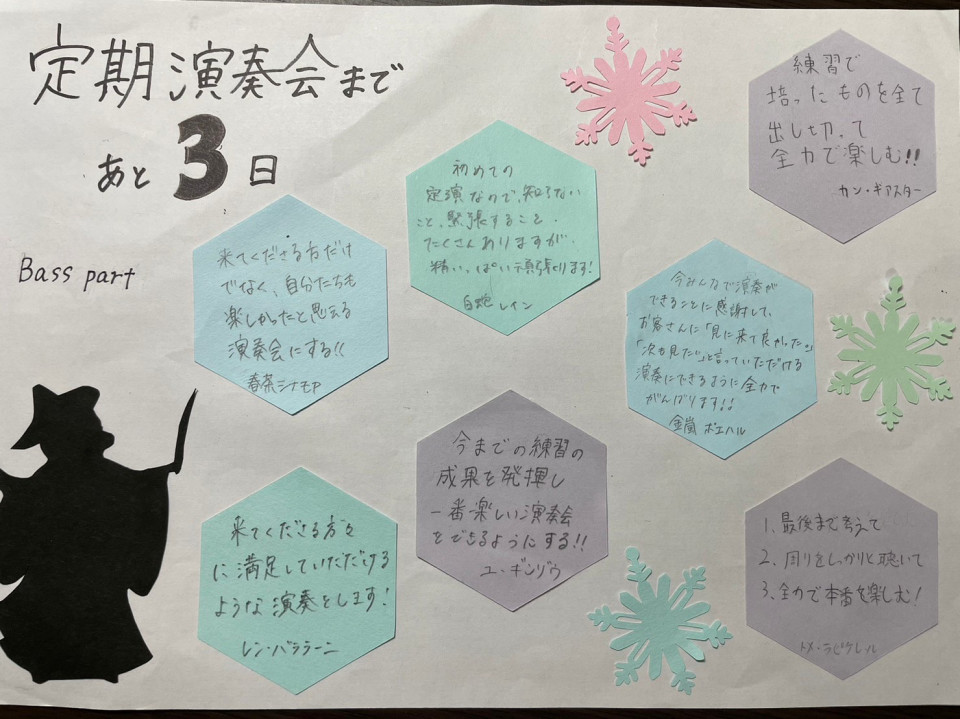 定期演奏会まで
あと3日
Bass part
来てくださる方だけ
でなく、自分たちも
楽しかったと思える
演奏会にする!!
春茶シナモア
初めての
定演なので、知らない
こと、緊張すること、
たくさんありますが、
精いっぱい頑張ります!
白蛇 レイン
練習で
培ったものを全て
出し切って
全力で楽しむ!!
カン・ギアスター
今みんなで演奏が
できることに感謝して、
お客さんに「見に来て良かった。」
「次も見たい」と言っていただける
演奏にできるように全力で
がんばります!!
金嵐 ポエハル
来てくださる方々
に満足していただける
ような演奏をします!
レン・バララーニ
今までの練習の
成果を発揮し
一番楽しい演奏会
をできるようにする!!
ユ・ギンゾウ
1. 最後まで考えて
2. 周りをしっかりと聴いて
3. 全力で本番を楽しむ!